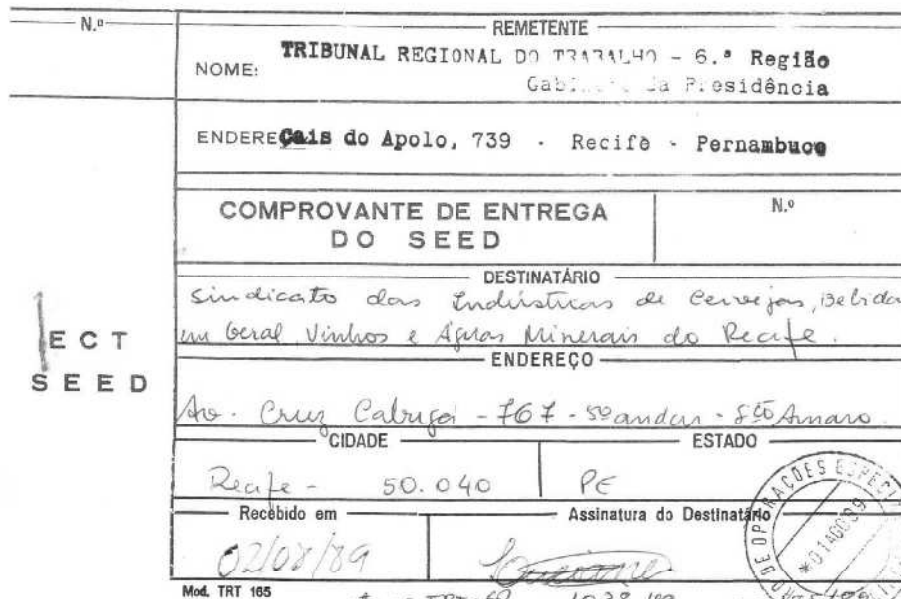 N.º
REMETENTE
NOME: TRIBUNAL REGIONAL DO TRABALHO - 6.ª Região
Gabinete da Presidência
ENDEREÇO Cais do Apolo, 739 - Recife - Pernambuco
COMPROVANTE DE ENTREGA
DO SEED
N.º
DESTINATÁRIO
Sindicato das Indústrias de Cervejas, Bebida
em Geral Vinhos e Águas Minerais do Recife.
ECT
SEED
ENDEREÇO
Av. Cruz Cabugá - 767 - 5º andar - Stº Amaro.
CIDADE
ESTADO
Recife - 50.040
PE
Recebido em
Assinatura do Destinatário
02/08/89
DE OPERAÇÕES ESPECI
*01AGO89
Mod. TRT 165